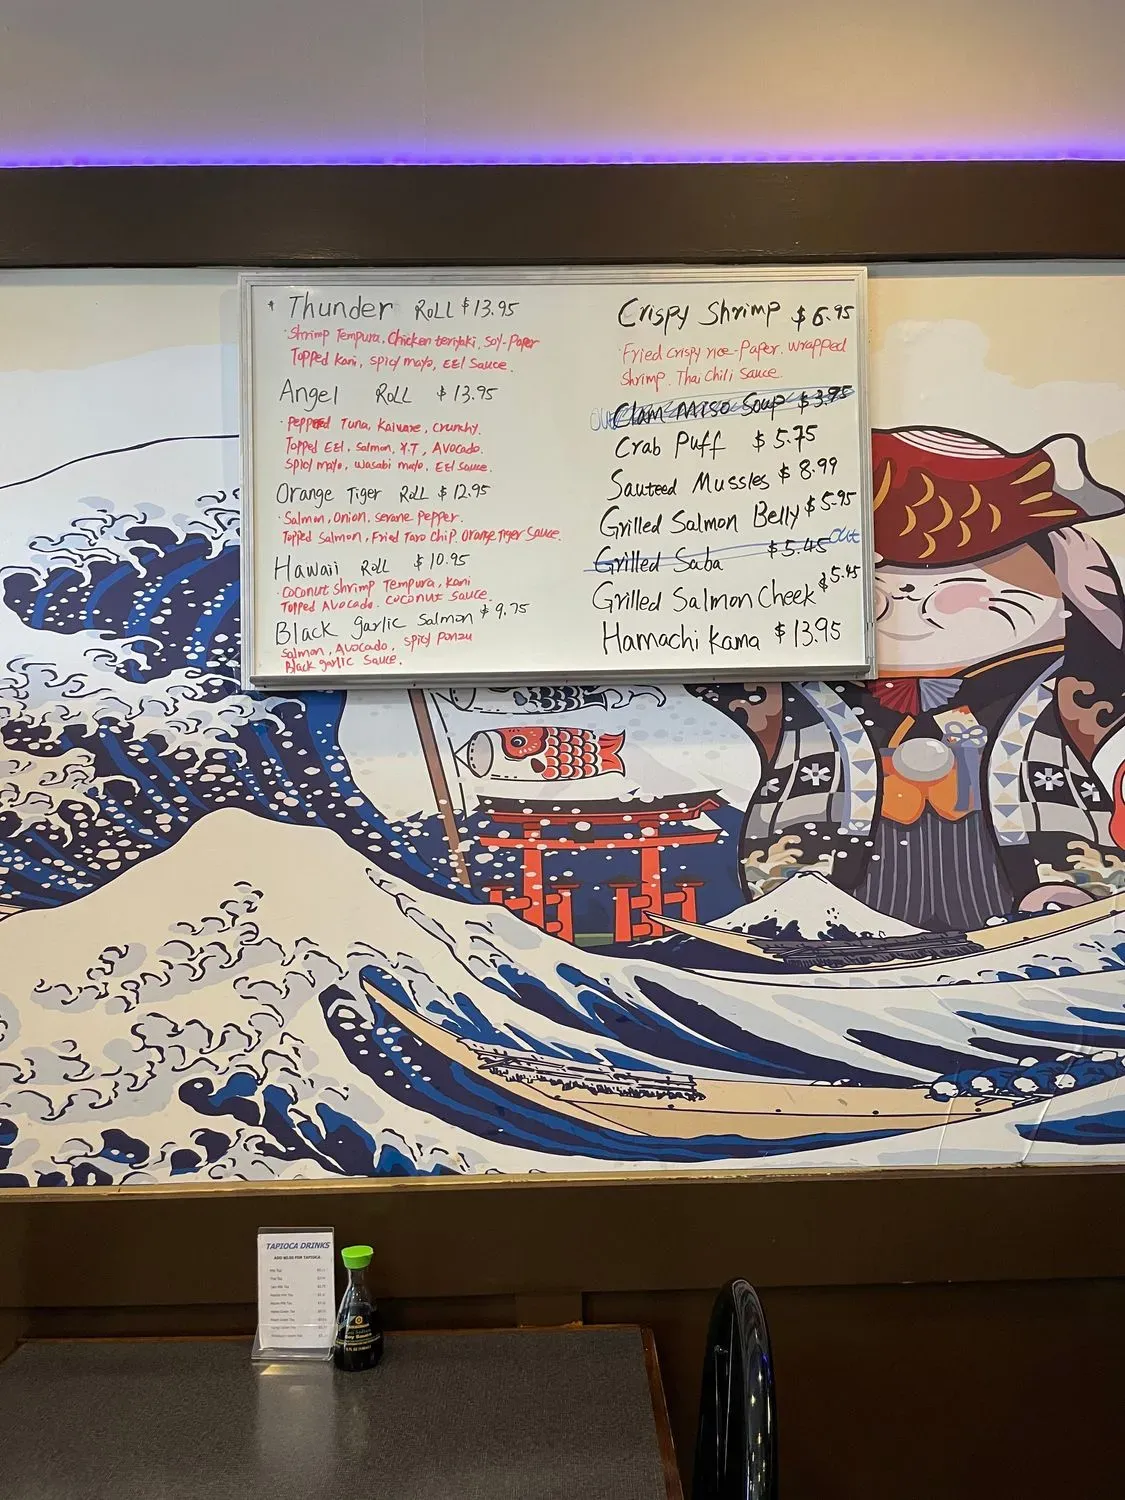 * Thunder Roll $13.95
· Shrimp Tempura, Chicken teriyaki, Soy-Paper
Topped Kani, spicy mayo, EEl Sauce.
Angel Roll $13.95
· Peppered Tuna, Kaiware, Crunchy.
Topped EEl, Salmon, Y.T, Avocado.
Spicy mayo, wasabi mayo, EEl Sauce.
Orange Tiger Roll $12.95
· Salmon, Onion, Serane Pepper.
Topped Salmon, Fried Taro Chip. Orange Tiger Sauce.
Hawaii Roll $10.95
· Coconut Shrimp Tempura, Kani
Topped Avocado. Coconut Sauce.
Black garlic Salmon $9.75
Salmon, Avocado, Spicy Ponzu
Black garlic Sauce.
Crispy Shrimp $6.95
· Fried crispy rice-Paper. wrapped
Shrimp. Thai Chili Sauce.
Out Clam Miso Soup $3.95
Crab Puff $5.75
Sauteed Mussles $8.99
Grilled Salmon Belly $5.95
Grilled Saba $5.45 Out
Grilled Salmon Cheek $5.45
Hamachi Kama $13.95
TAPIOCA DRINKS
Soy Sauce